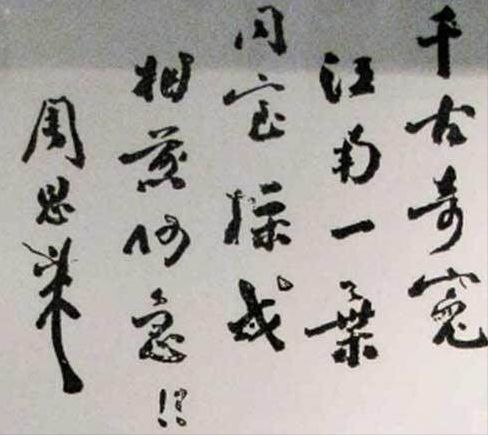 千古奇冤
江南一葉
同室操戈
相煎何急!?
周恩來